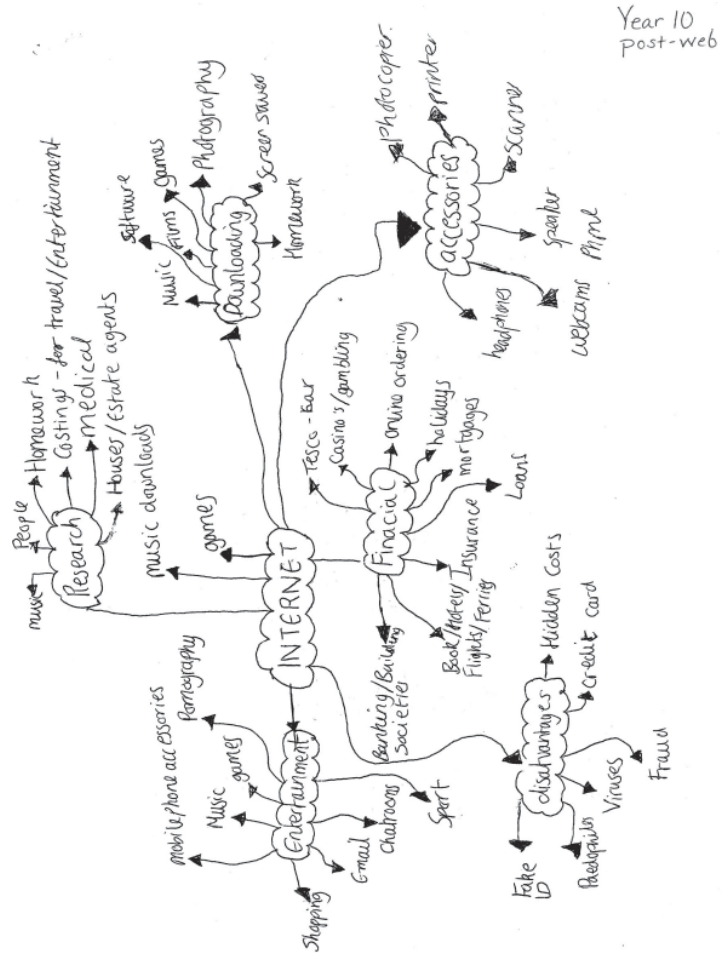 Year 10
post-web
INTERNET
games
music downloads
Research
music
People
Homework
Costings - for travel/Entertainment
medical
Houses/Estate agents
Downloading
Music
Software
Films
games
Photography
Screen saver
Homework
accessories
Photocopier.
printer
scanner
Speaker
Phone
webcams
headphones
Finacial
Tesco - Ear
Casino's/gambling
Online ordering
holidays
mortgages
Loans
Insurance
Book/Hotels/
Flights/Ferries
Banking/Building
Societies
disatvantages
Hidden Costs
Credit card
Fraud
Viruses
Paedophiles
Fake
ID
Entertainment
Shopping
mobile phone accessories
Music
games
Pornography
Sport
Chatrooms
Email